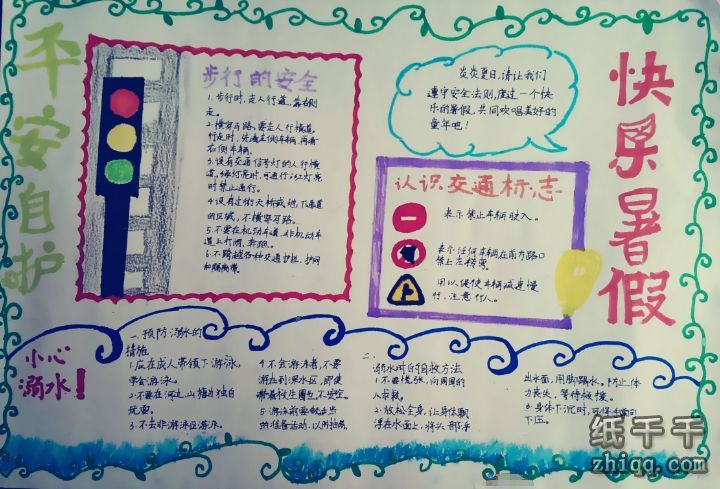 平安自护
快乐暑假
步行的安全
1.步行时,走人行道,靠右侧
走。
2.横穿马路,要走人行横道,
行走时,先看左侧车辆,再看
右侧车辆。
3.设有交通信号灯的人行横
道,绿灯亮时,可通行;红灯亮
时禁止通行。
4.设有过街天桥或地下通道
的区域,不横穿马路。
5.不要在机动车道、非机动车
道上打闹、奔跑。
6.不跨越各种交通护栏、护网
和隔离带。
炎炎夏日,请让我们
遵守安全法则,度过一个快
乐的暑假,共同吹唱美好的
童年吧!
认识交通标志
表示禁止车辆驶入。
表示任何车辆在前方路口
禁止左转弯。
用以促使车辆减速慢
行,注意行人。
小心
溺水!
一、预防溺水的
措施
1.应在成人带领下游泳,
学会游泳。
2.不要在河边、山塘边独自
玩耍。
3.不去非游泳区游泳。
4.不会游泳者,不要
游到深水区,即使
带着救生圈也不安全。
5.游泳前要做适当
的准备活动,以防抽筋。
二、
溺水时的自救方法
1.不要慌张,向周围的
人求救。
2.放松全身,让身体飘
浮在水面上,将头部浮
出水面,用脚踢水,防止体
力丧失,等待救援。
3.身体下沉时,可将手掌向
下压。
纸千千
zhiqq.com